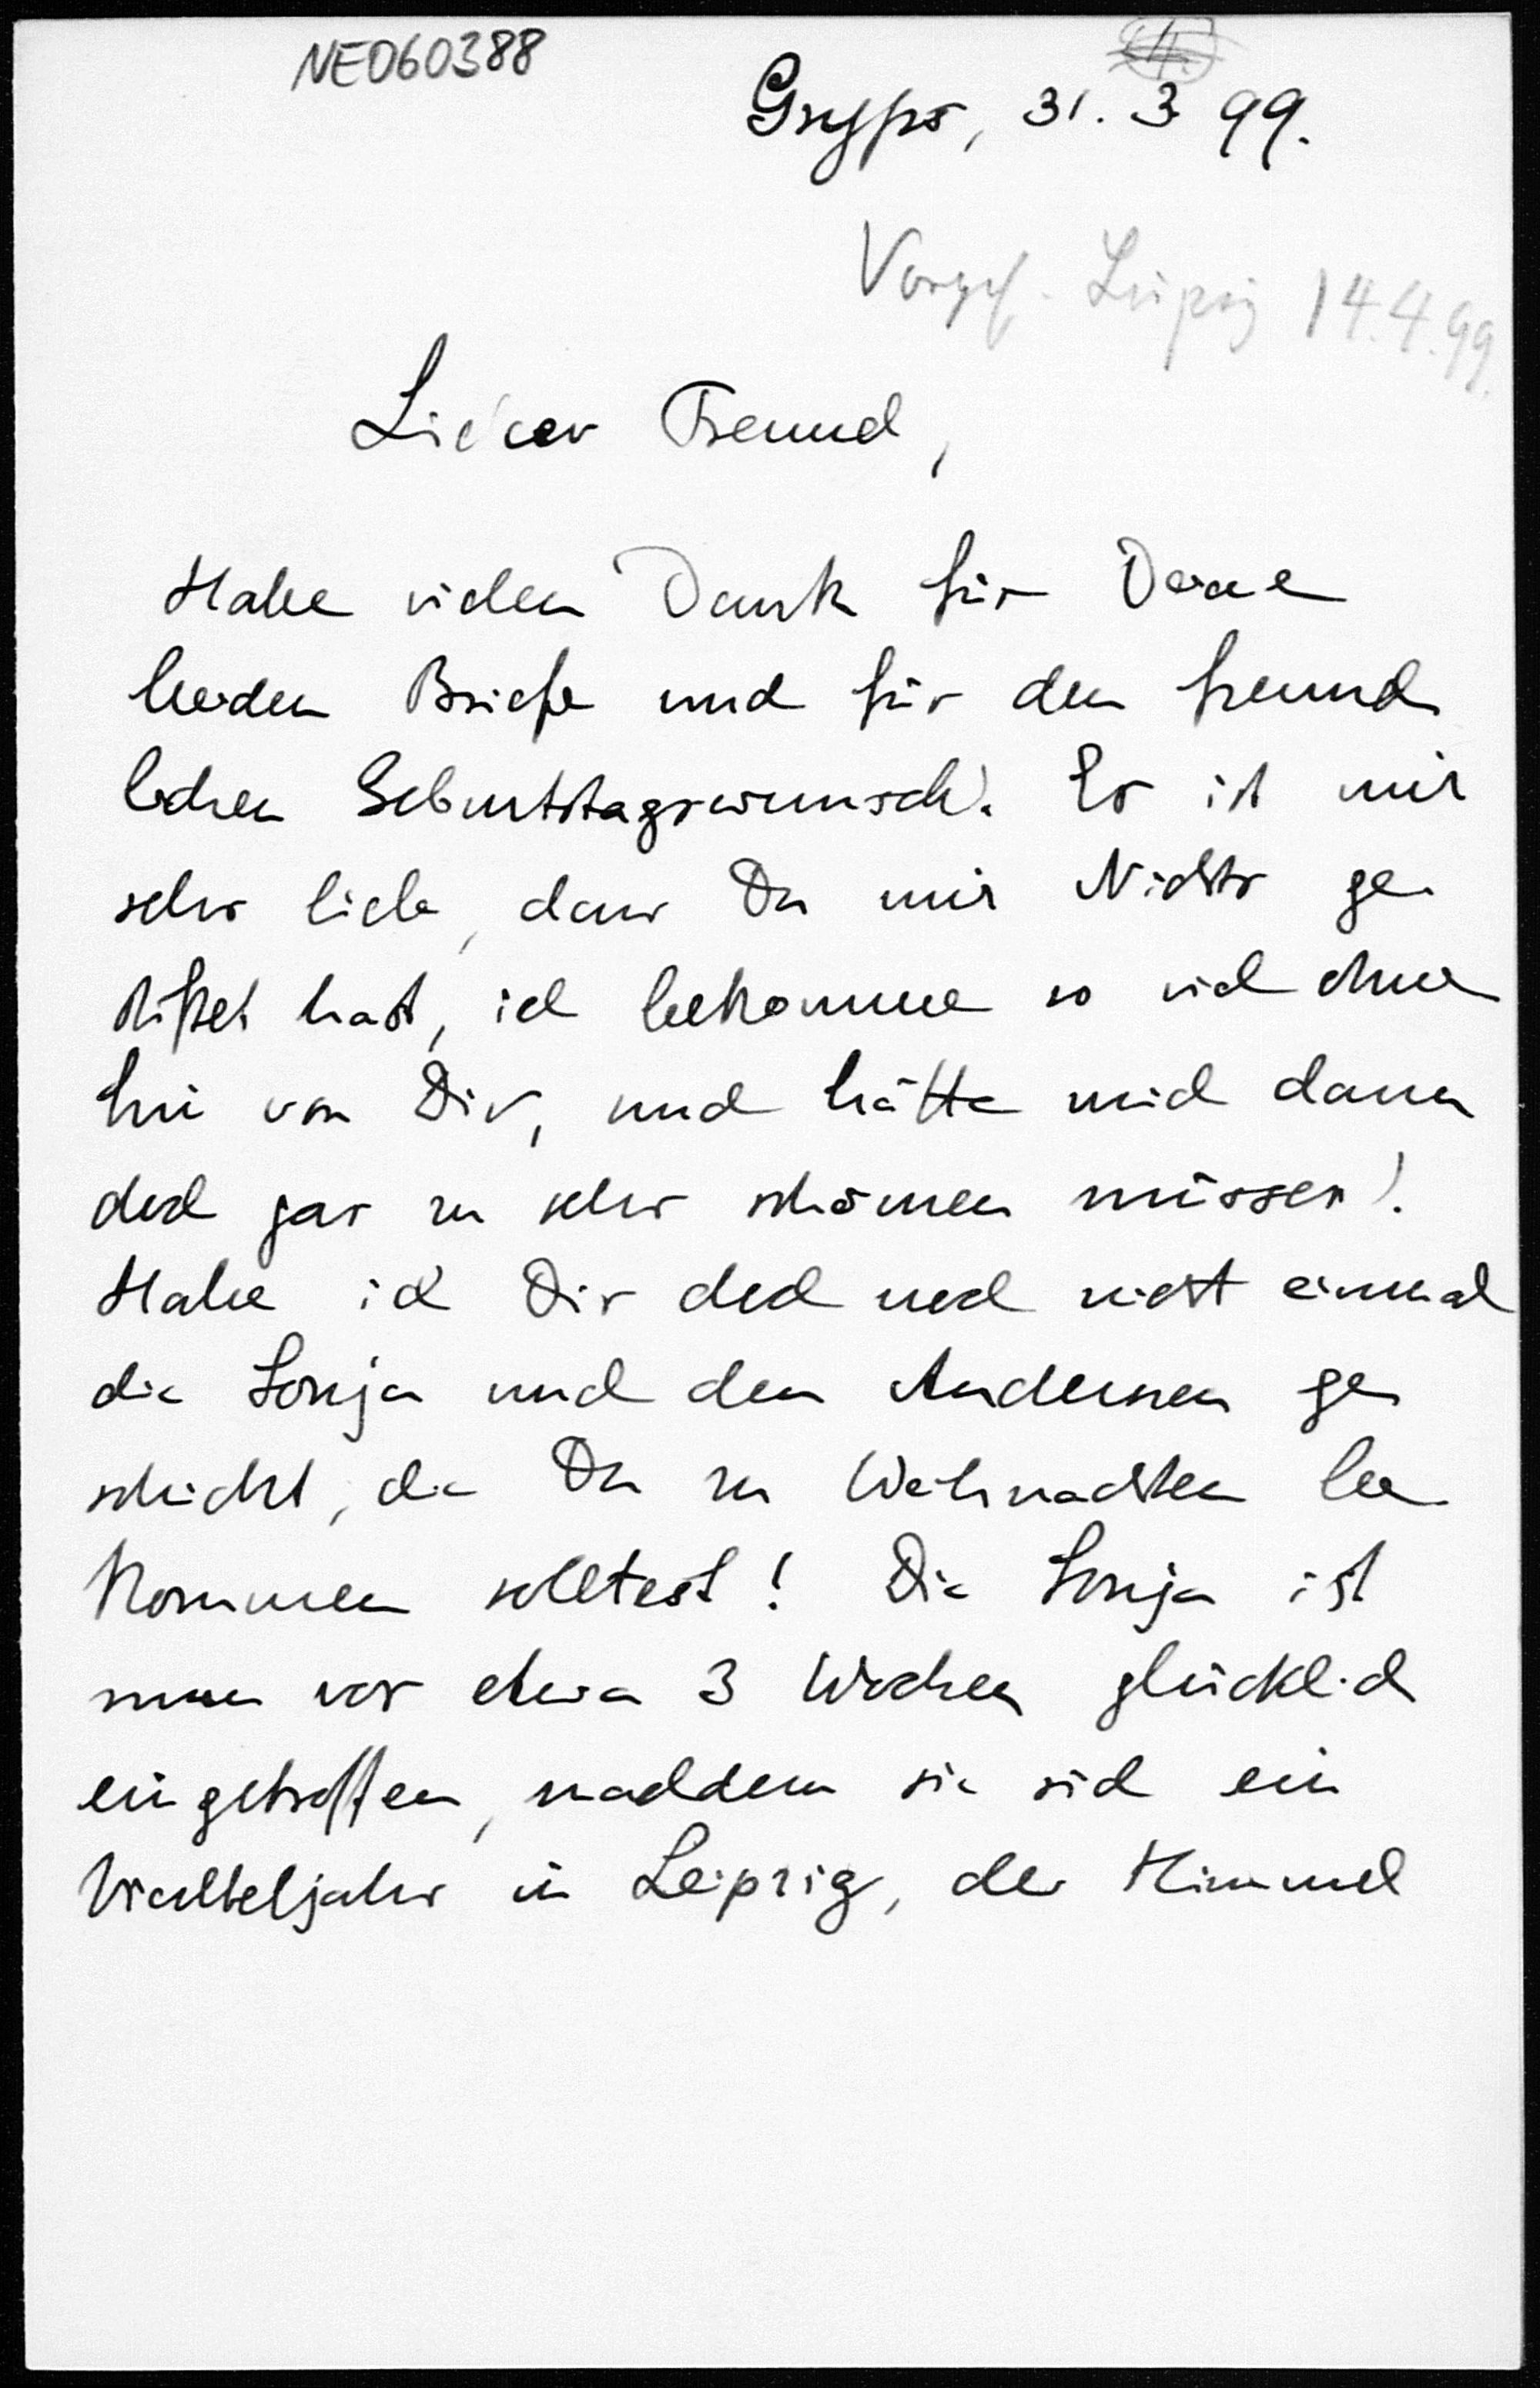 NE060388
Gryps, 31. 3 99.
Leipzig 14.4.99.
Lieber Freund,
Habe vielen Dank für Deine
beiden Briefe und für den freund
lichen Geburtstagswunsch! Es ist mir
sehr lieb, dass Du mir Nichts ge
stiftet hast, ich bekomme so viel ohne
hin von Dir, und hätte mich dann
doch gar zu sehr schämen müssen!
Habe ich Dir doch noch nicht einmal
die Sonja und den Andersen ge
schickt, die Du zu Weihnachten be
kommen solltest! Die Sonja ist
nun vor etwa 3 Wochen glücklich
eingetroffen, nachdem sie sich ein
Vierteljahr in Leipzig, der Himmel